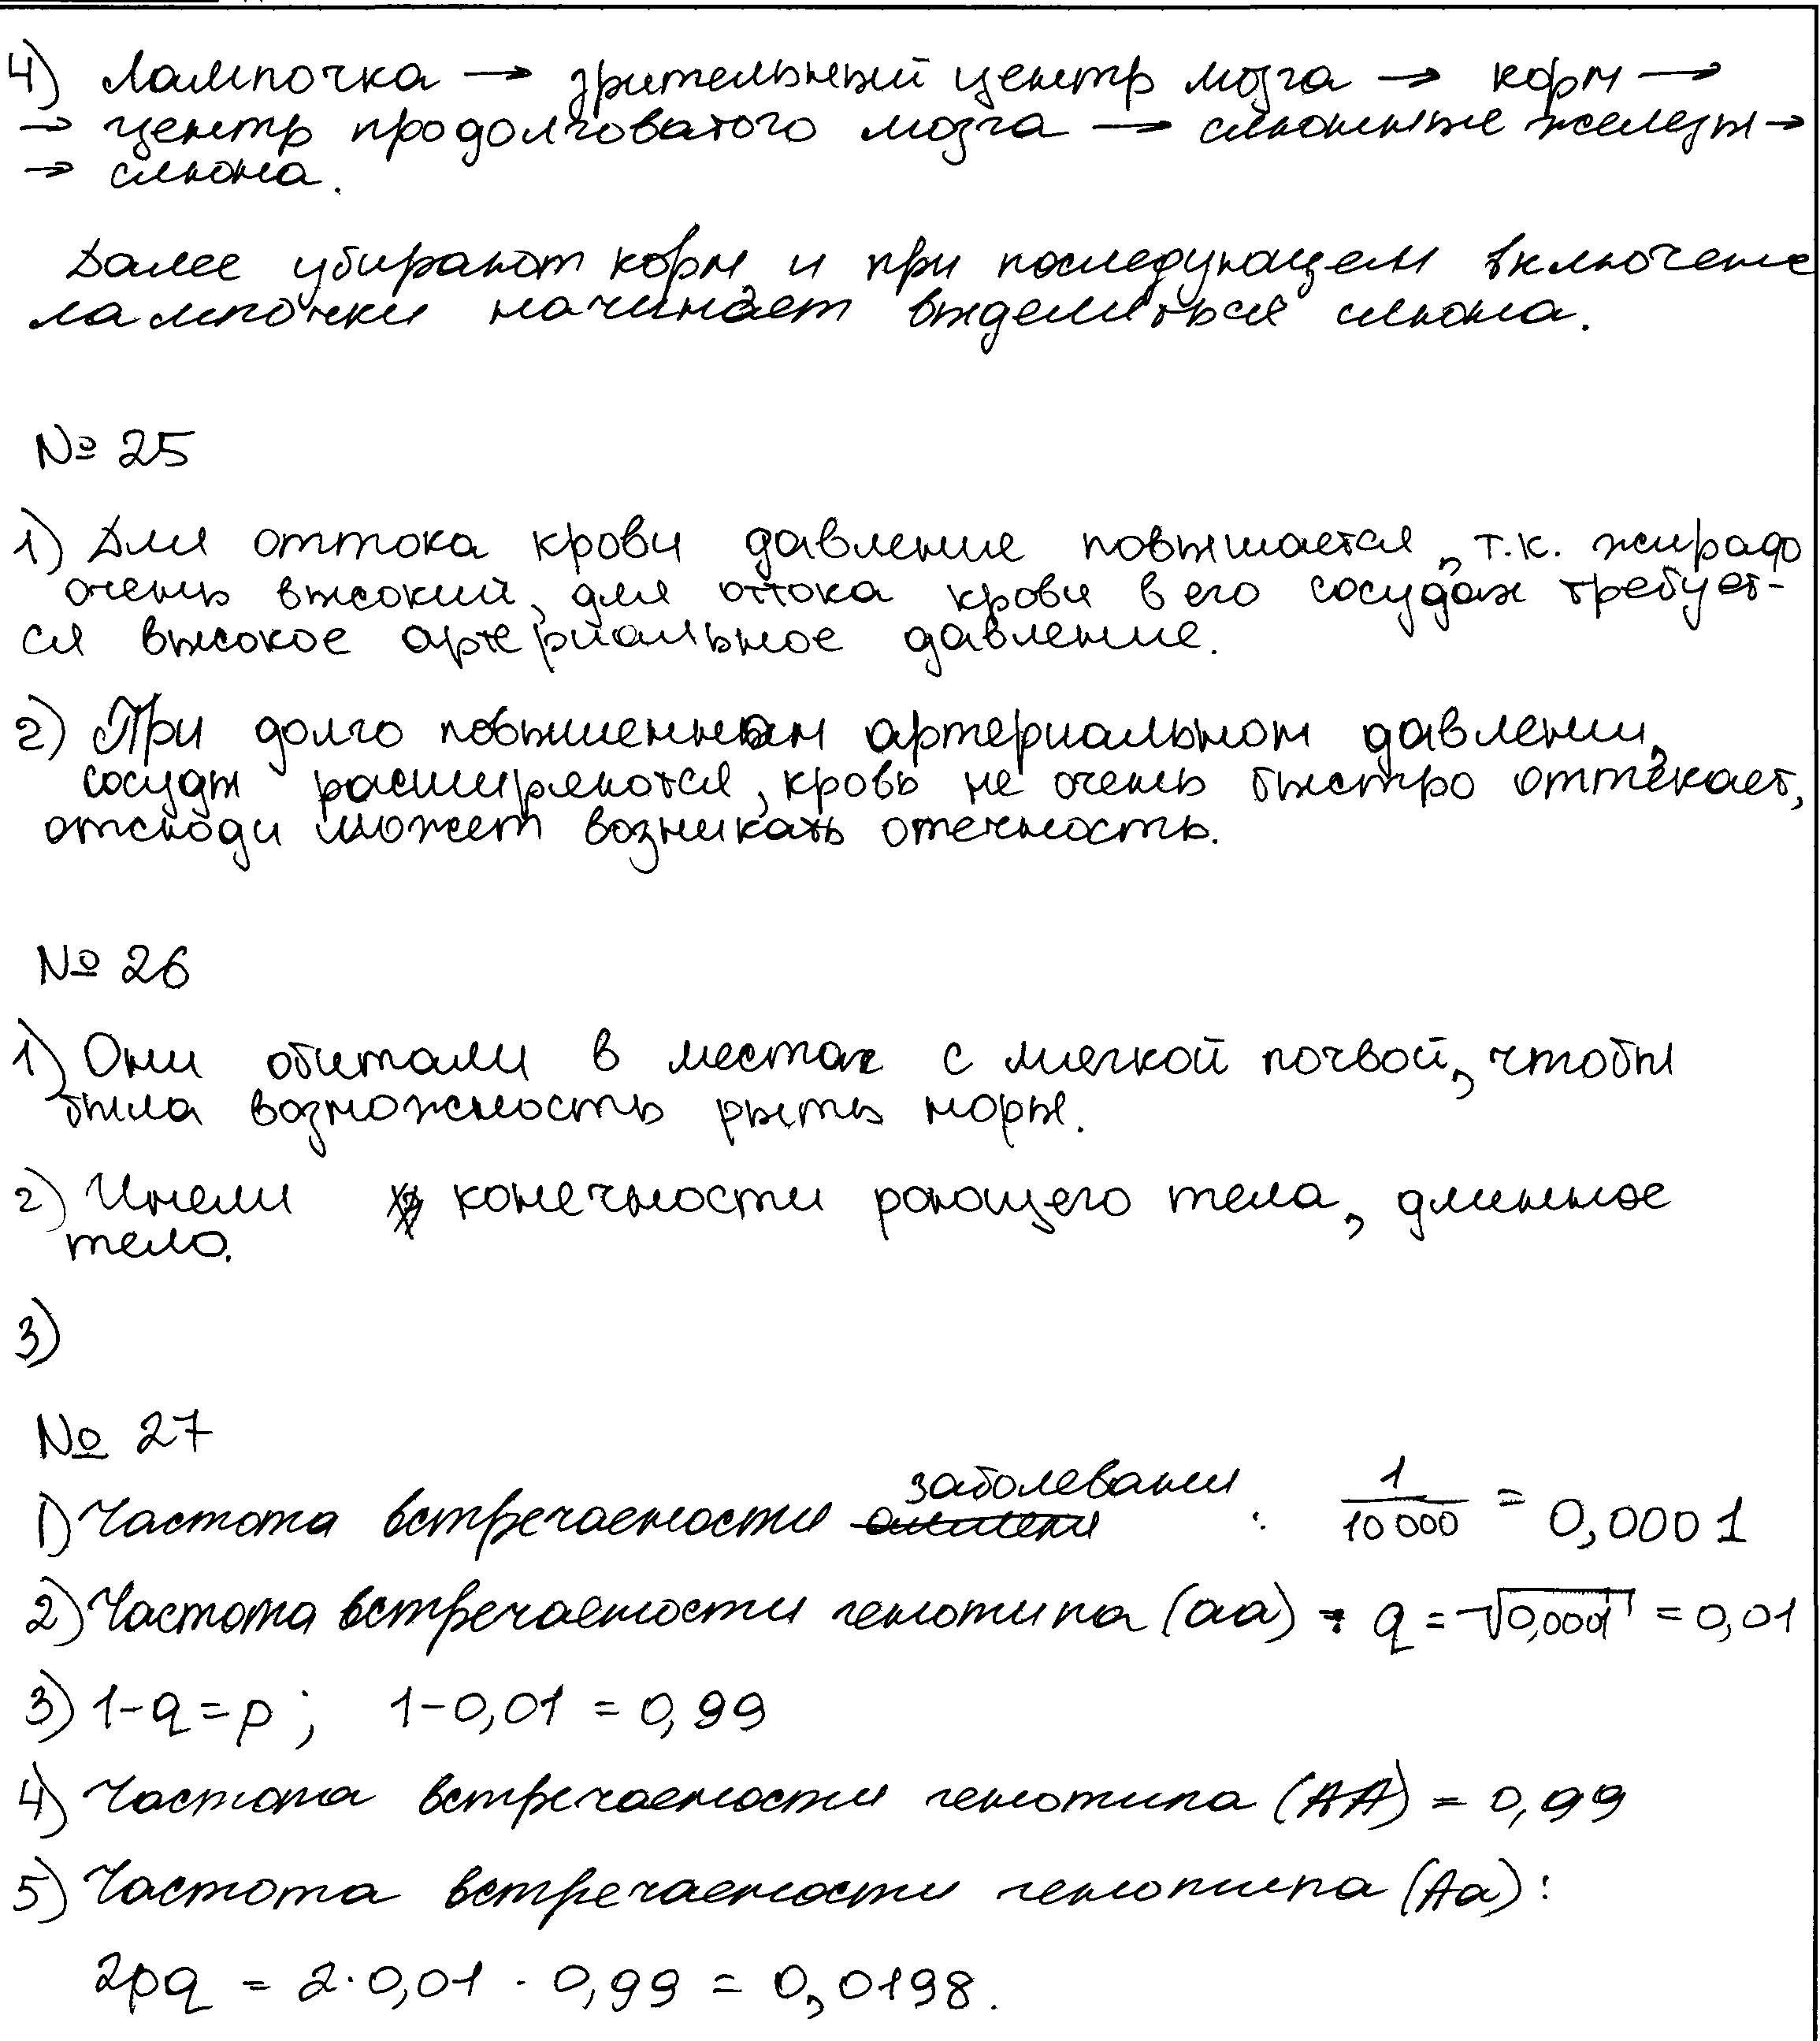 4) Лампочка → зрительный центр мозга → корм →
→ центр продолговатого мозга → слюнные железы →
→ слюна.
Далее убирают корм и при последующем включение
лампочки начинает выделиться слюна.
№ 25
1) Для оттока крови давление повышается, т.к. жираф
очень высокий, для оттока крови в его сосудах требует-
ся высокое артериальное давление.
2) При долго повышенном артериальном давлении,
сосуды расширяются, кровь не очень быстро оттекает,
отсюда может возникать отечность.
№ 26
1) Они обитали в местах с мягкой почвой, чтобы
была возможность рыть норы.
2) Имели конечности роющего тела, длинное
тело.
3)
№ 27
1) Частота встречаемости заболевания : 1/10 000 = 0,0001
2) Частота встречаемости генотипа (aa) : q = √0,0001 = 0,01
3) 1-q=p ; 1-0,01 = 0,99
4) Частота встречаемости генотипа (AA) = 0,99
5) Частота встречаемости генотипа (Aa):
2pq = 2·0,01 · 0,99 = 0,0198.